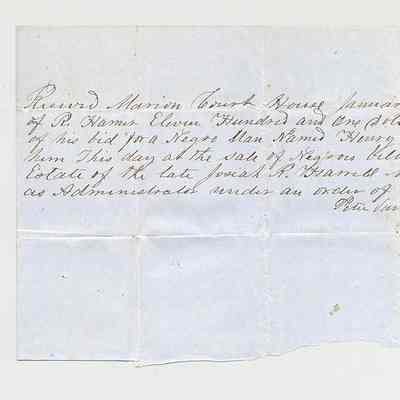 Received Marion Court House Januar
of R. Hamer Eleven Hundred and One Dol
of his bid for a Negro Man Named Henry
him This day at the sale of Negroes belo
Estate of the late Josiah R. Harrell
as Administrator under an order of
Peter